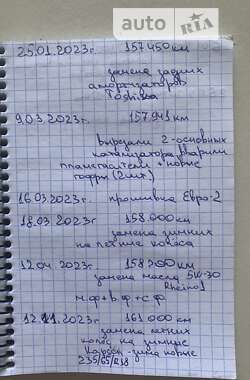 auto RIA
25.01.2023г. 157450 км
замена задних
амортизаторов
Toshiba
9.03.2023г. 157.941 км
вырезали 2-основных
катализатора вварили
пламегасители + новые
гофры (2шт.)
16.03.2023г. прошивка Евро-2
18.03.2023г 158.000 км
замена зимних
на летние колёса
12.04.2023г. 158.700 км
замена масла 5W-30
Rheinol
м.ф + в.ф + с.ф
12.11.2023г. 161 000 км
замена летних
колёс на зимние
Колёса - зима новые
235/65/R18